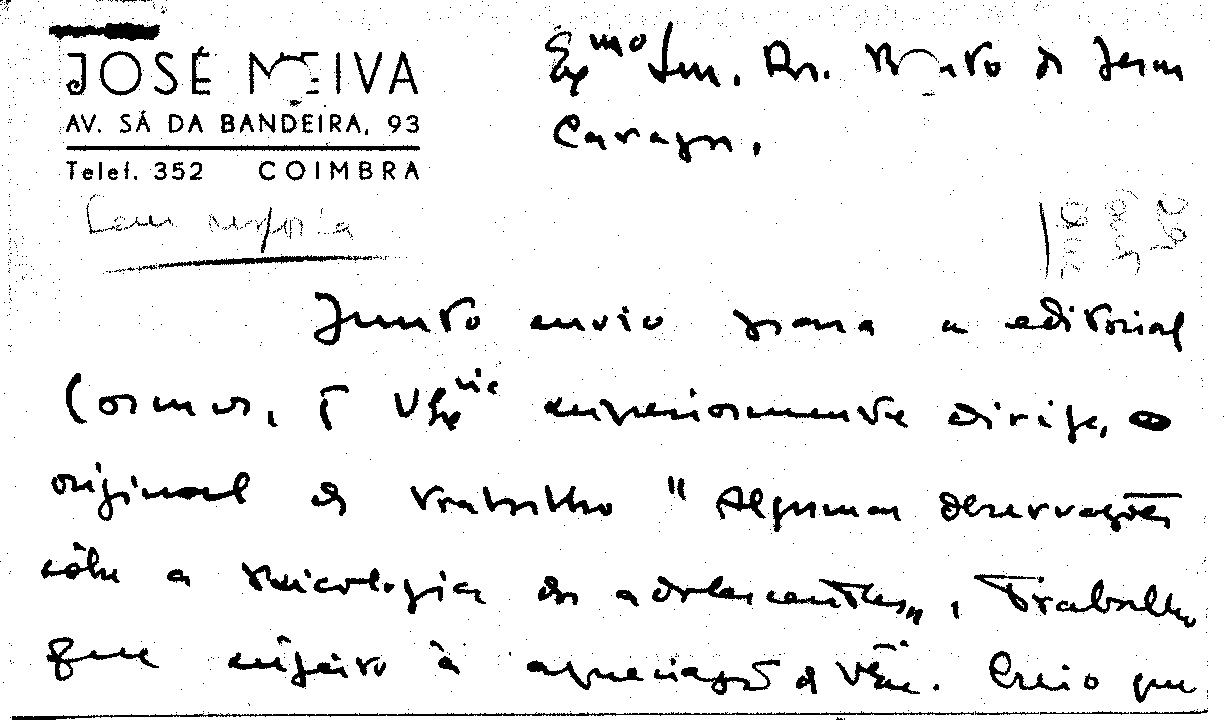 JOSÉ NEIVA
AV. SÁ DA BANDEIRA, 93
Telef. 352 COIMBRA
Exmo Snr. Dr. Bento de Jesus
Caraça,
Sem resposta
Junto envio para a editorial
Cosmos, q VExcia superiormente dirige, o
original do trabalho "Algumas observações
sôbre a psicologia dos adolescentes", trabalho
que sujeito à apreciação de VExcia. Creio que